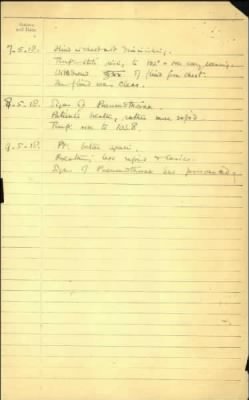 Station
and Date
7.5.18. Fluid in chest not diminishing.
Temp. still rises to 102° every evening.
Withdrew of fluid from chest.
fluid was clear.
8.5.18. Signs of Pneumothorax.
Patients breath rather more rapid.
Temp. rose to 100.8
9.5.18. Pt. better again.
Breathing less rapid & easier.
Signs of Pneumothorax less pronounced.